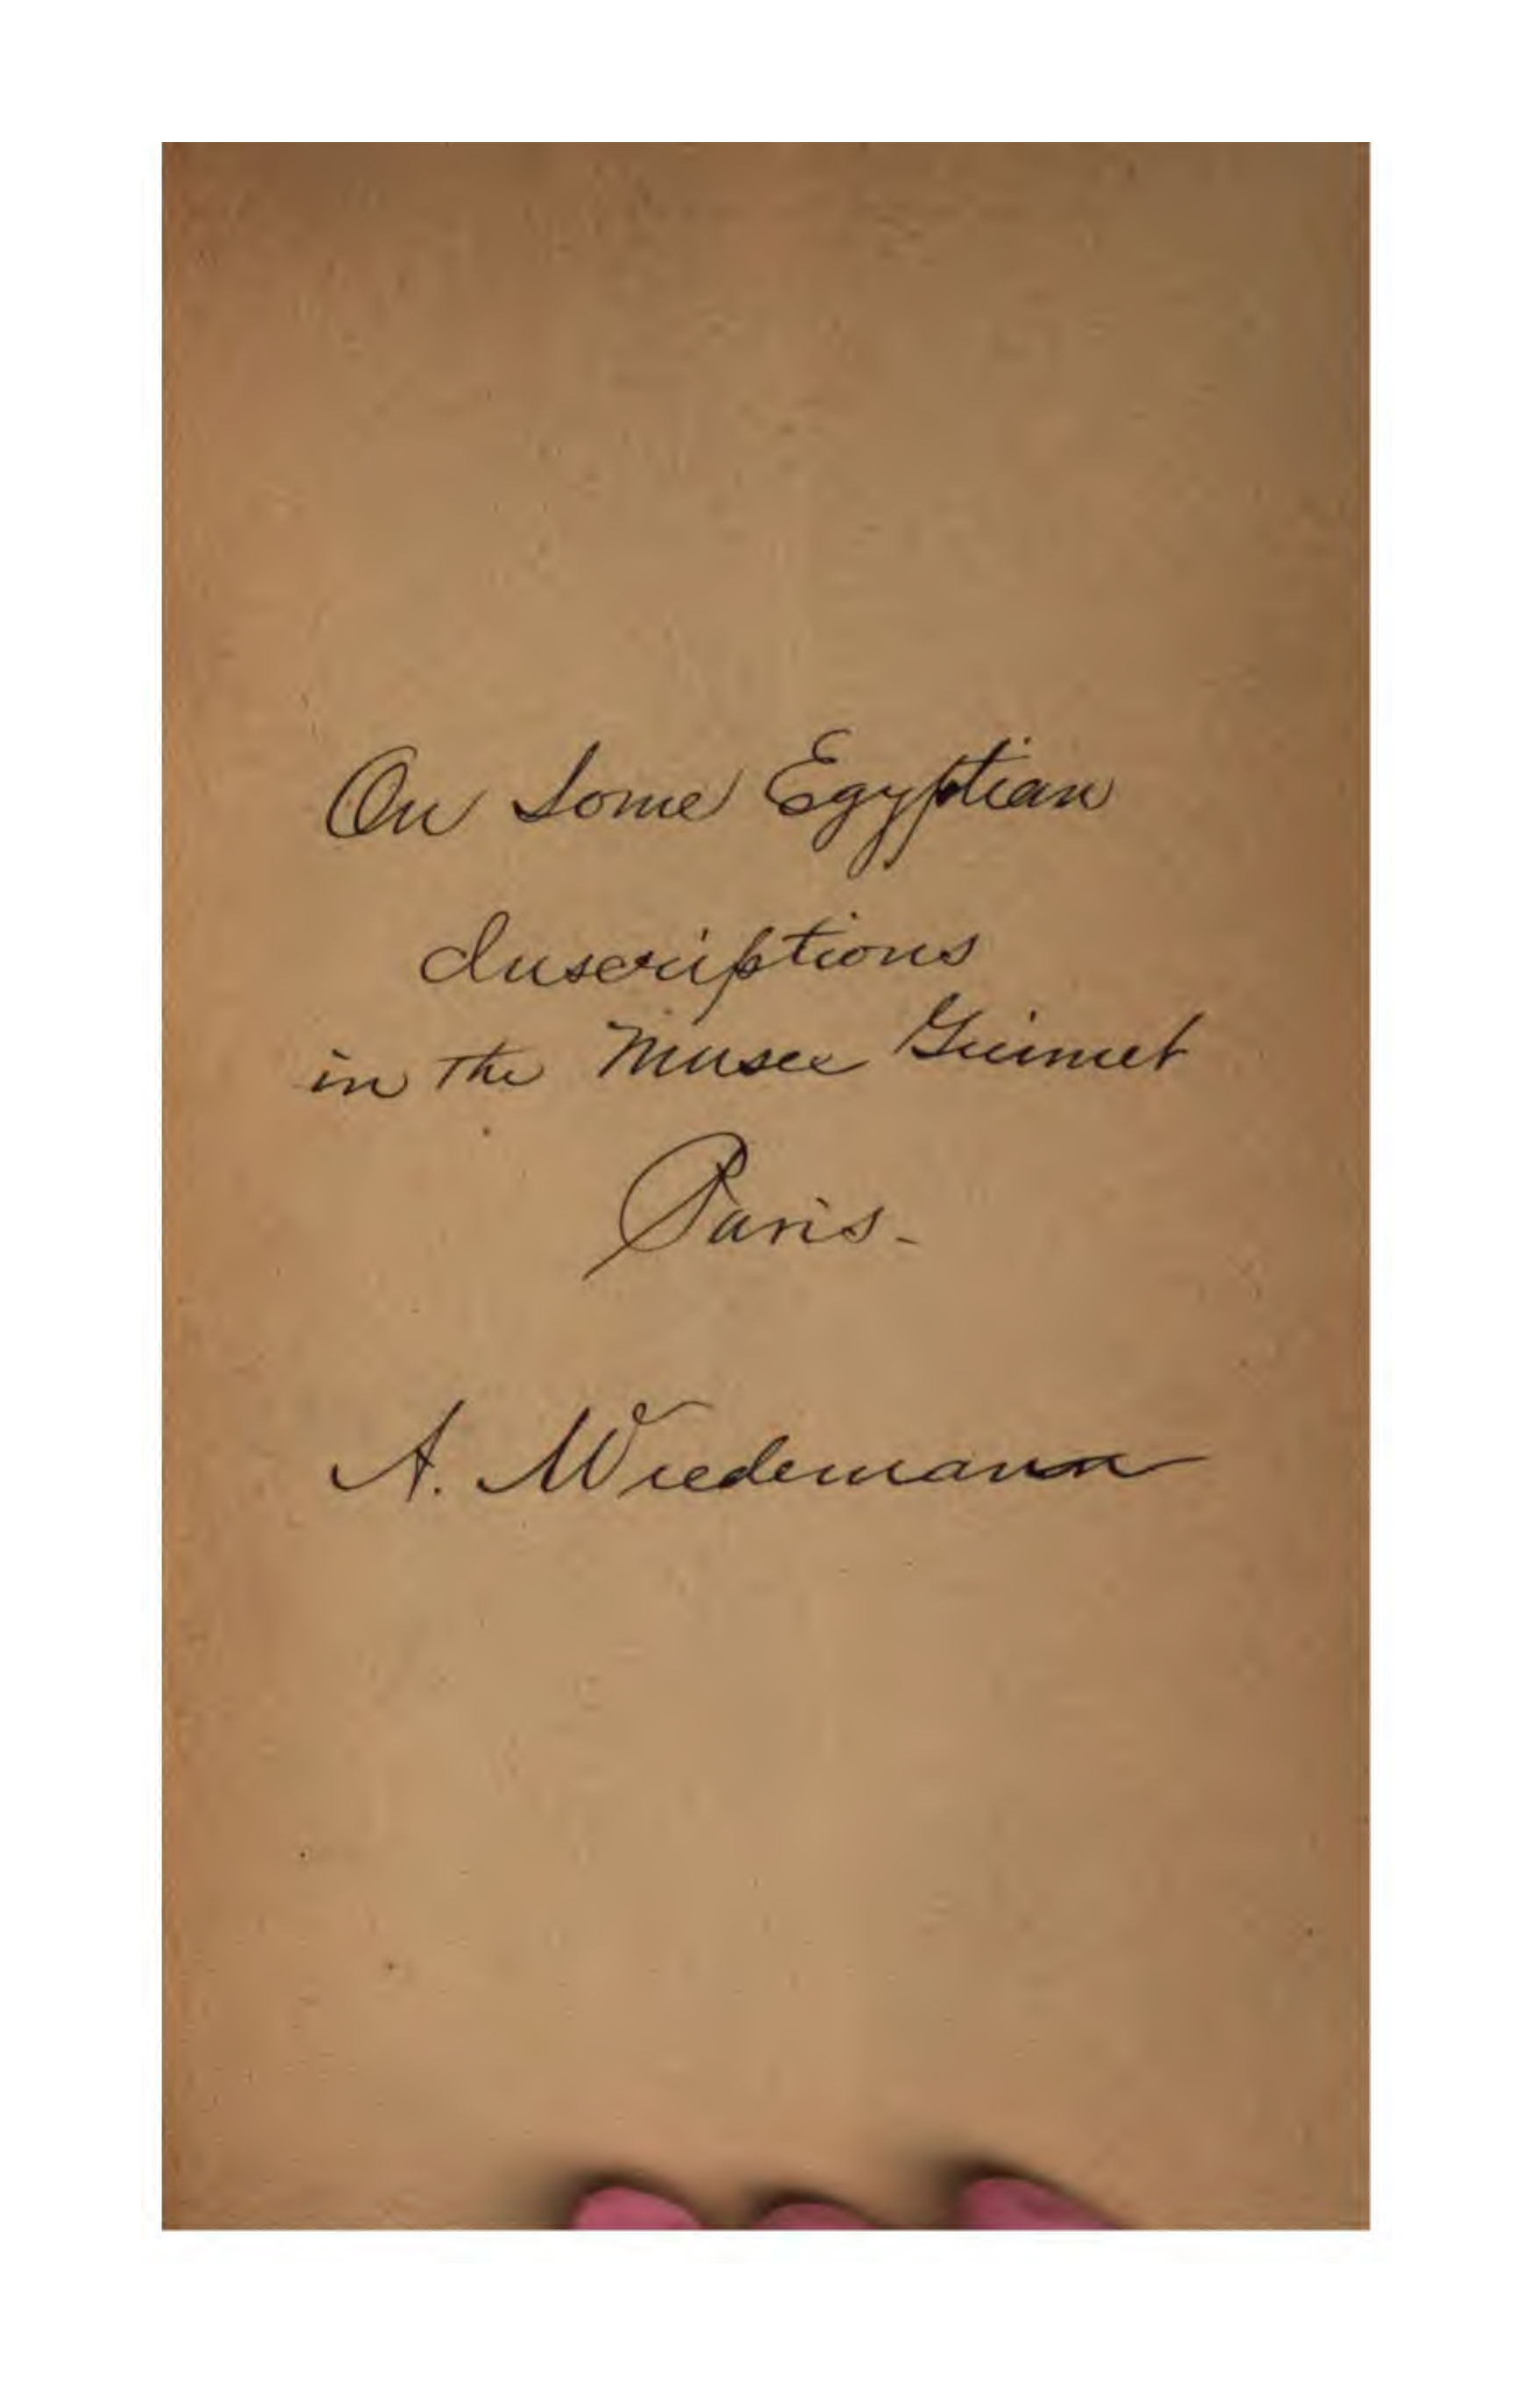 On Some Egyptian
Inscriptions
in the Musee Guimet
Paris.
A. Wiedemann